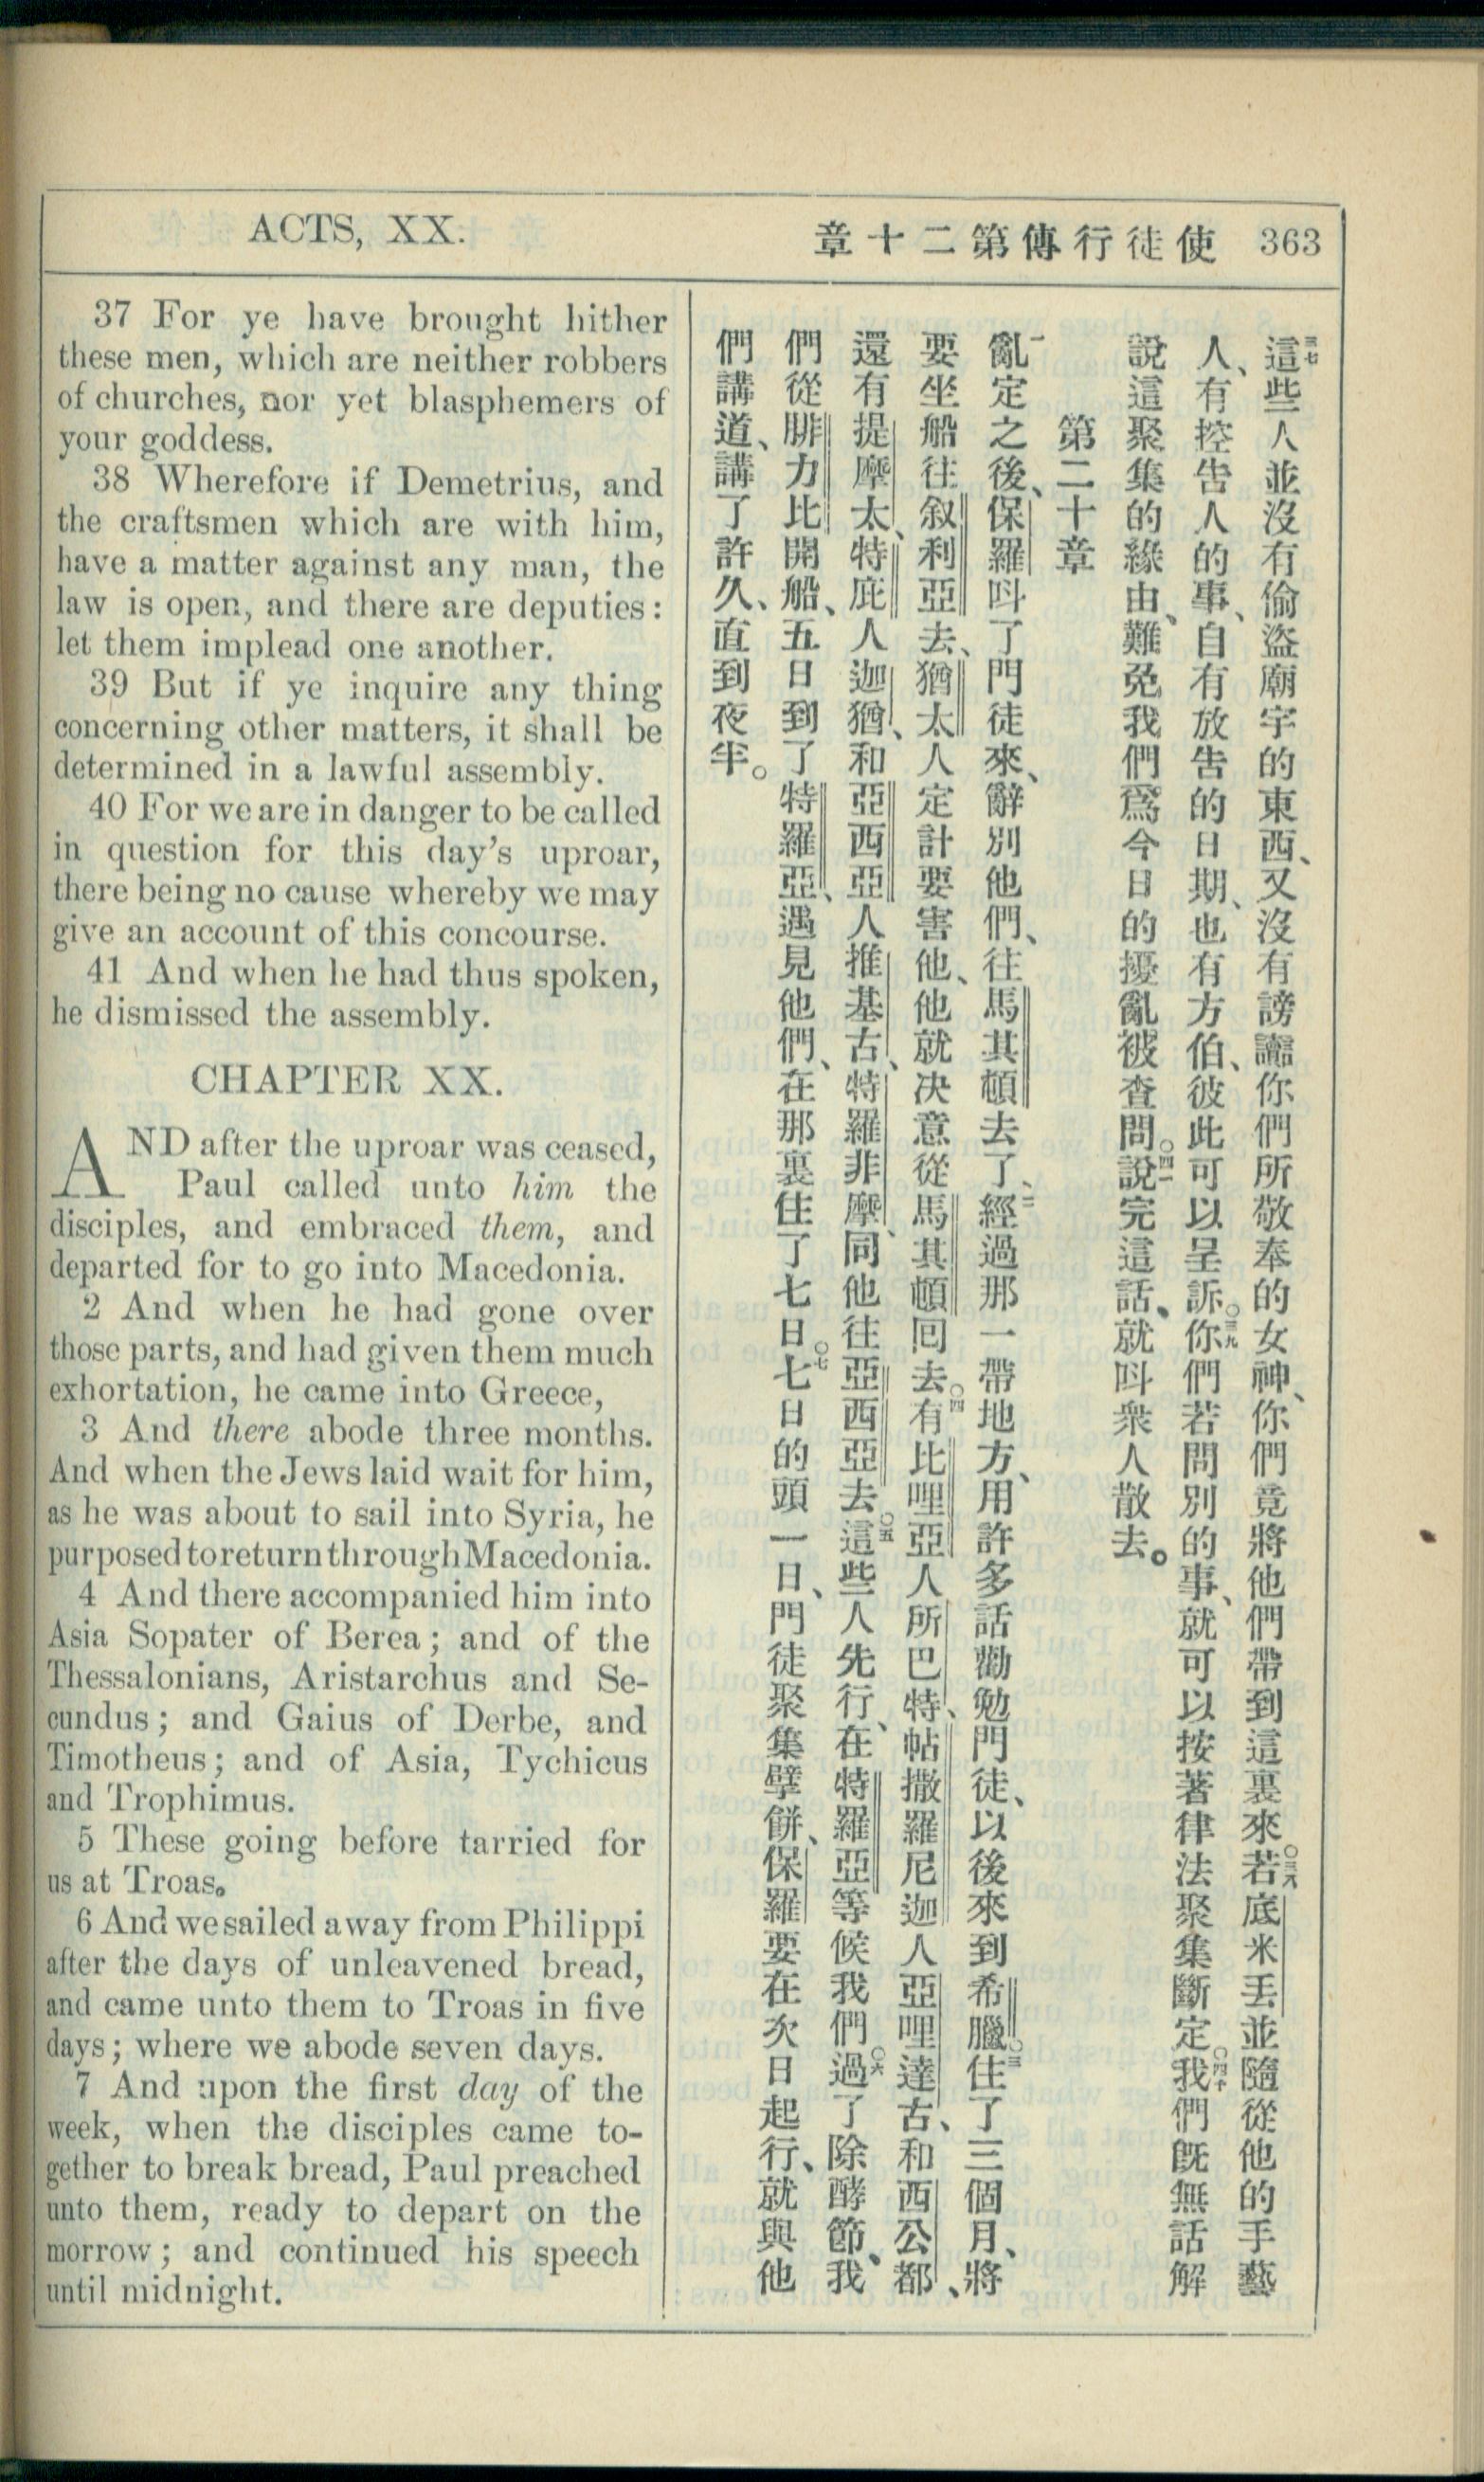 ACTS, XX.
使徒行傳第二十章 363
37 For ye have brought hither
these men, which are neither robbers
of churches, nor yet blasphemers of
your goddess.
38 Wherefore if Demetrius, and
the craftsmen which are with him,
have a matter against any man, the
law is open, and there are deputies:
let them implead one another.
39 But if ye inquire any thing
concerning other matters, it shall be
determined in a lawful assembly.
40 For we are in danger to be called
in question for this day's uproar,
there being no cause whereby we may
give an account of this concourse.
41 And when he had thus spoken,
he dismissed the assembly.
CHAPTER XX.
AND after the uproar was ceased,
Paul called unto him the
disciples, and embraced them, and
departed for to go into Macedonia.
2 And when he had gone over
those parts, and had given them much
exhortation, he came into Greece,
3 And there abode three months.
And when the Jews laid wait for him,
as he was about to sail into Syria, he
purposed to return through Macedonia.
4 And there accompanied him into
Asia Sopater of Berea; and of the
Thessalonians, Aristarchus and Se-
cundus; and Gaius of Derbe, and
Timotheus; and of Asia, Tychicus
and Trophimus.
5 These going before tarried for
us at Troas.
6 And we sailed away from Philippi
after the days of unleavened bread,
and came unto them to Troas in five
days; where we abode seven days.
7 And upon the first day of the
week, when the disciples came to-
gether to break bread, Paul preached
unto them, ready to depart on the
morrow; and continued his speech
until midnight.
三七這些人並沒有偷盜廟宇的東西、又沒有謗讟你們所敬奉的女神、你們竟將他們帶到這裏來。三八若底米丟並隨從他的手藝
人、有控告人的事、自有放告的日期、也有方伯、彼此可以呈訴。三九你們若問別的事、就可以按著律法聚集斷定。四十我們旣無話解
說這聚集的緣由、難免我們爲今日的擾亂被查問。四一說完這話、就呌衆人散去。
第二十章
一亂定之後、保羅呌了門徒來、辭別他們、往馬其頓去了、二經過那一帶地方、用許多話勸勉門徒、以後來到希臘。三住了三個月、將
要坐船往叙利亞去、猶太人定計要害他、他就決意從馬其頓囘去。四有比哩亞人所巴特、帖撒羅尼迦人亞哩達古、和西公都、
還有提摩太、特庇人迦猶、和亞西亞人推基古、特羅非摩、同他往亞西亞去。五這些人先行、在特羅亞等候我們。六過了除酵節、我
們從腓力比開船、五日到了特羅亞、遇見他們、在那裏住了七日。七七日的頭一日、門徒聚集擘餅、保羅要在次日起行、就與他
們講道、講了許久、直到夜半。